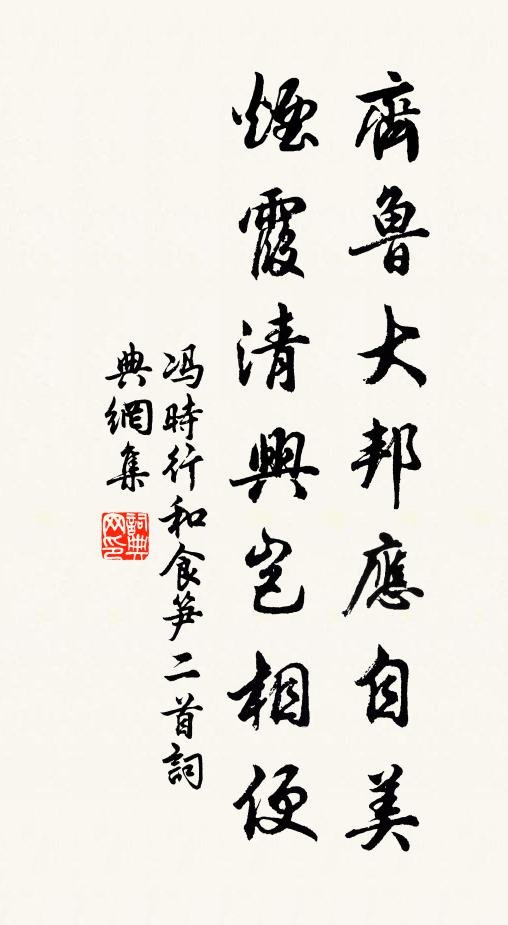 齊魯大邦應自美
煙霞清興豈相便
冯時行和食笋二首詞
典網集
詞典網印